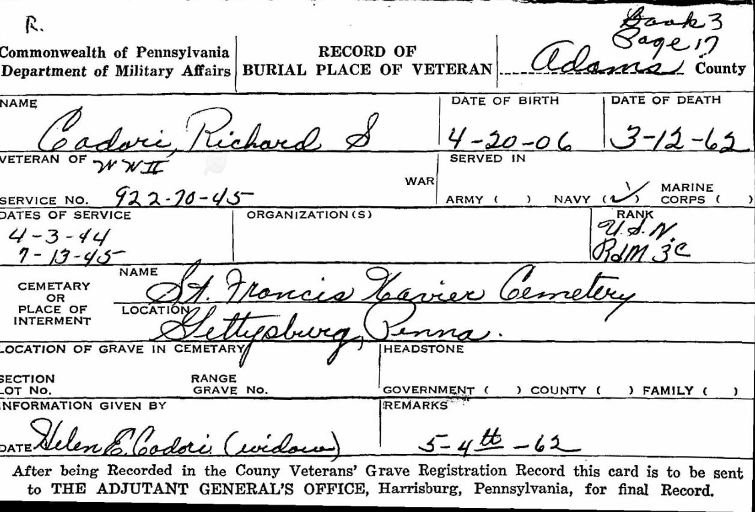 R.
Book 3
Page 17
Commonwealth of Pennsylvania
Department of Military Affairs
RECORD OF
BURIAL PLACE OF VETERAN
Adams County
NAME
Codori, Richard S
DATE OF BIRTH
4-20-06
DATE OF DEATH
3-12-62
VETERAN OF
WWII
WAR
SERVICE NO. 922-70-45
SERVED IN
ARMY ( ) NAVY (✓) MARINE CORPS ( )
DATES OF SERVICE
4-3-44
7-13-45
ORGANIZATION(S)
RANK
U.S.N.
RdM 3c
CEMETARY
OR
PLACE OF
INTERMENT
NAME
St. Francis Xavier Cemetery
LOCATION
Gettysburg, Penna.
LOCATION OF GRAVE IN CEMETARY
SECTION RANGE
LOT No. GRAVE No.
HEADSTONE
GOVERNMENT ( ) COUNTY ( ) FAMILY ( )
INFORMATION GIVEN BY
DATE Helen E. Codori (widow)
REMARKS
5-4th-62
After being Recorded in the Couny Veterans' Grave Registration Record this card is to be sent
to THE ADJUTANT GENERAL'S OFFICE, Harrisburg, Pennsylvania, for final Record.